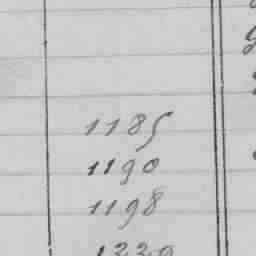 1185
1190
1198